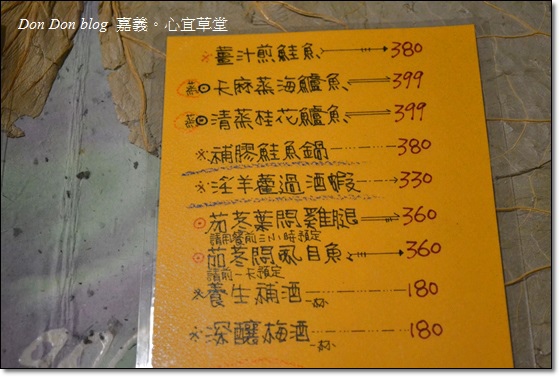 Don Don blog 嘉義。心宜草堂
※薑汁煎鮭魚 380
卡麻蒸海鱸魚 399
清蒸桂花鱸魚 399
※補膠鮭魚鍋 380
※淫羊藿過酒蝦 330
茄苳葉悶雞腿 360
請用餐前三小時預定
茄苳悶虱目魚 360
請前一天預定
※養生補酒 一杯 180
※深釀梅酒 一杯 180